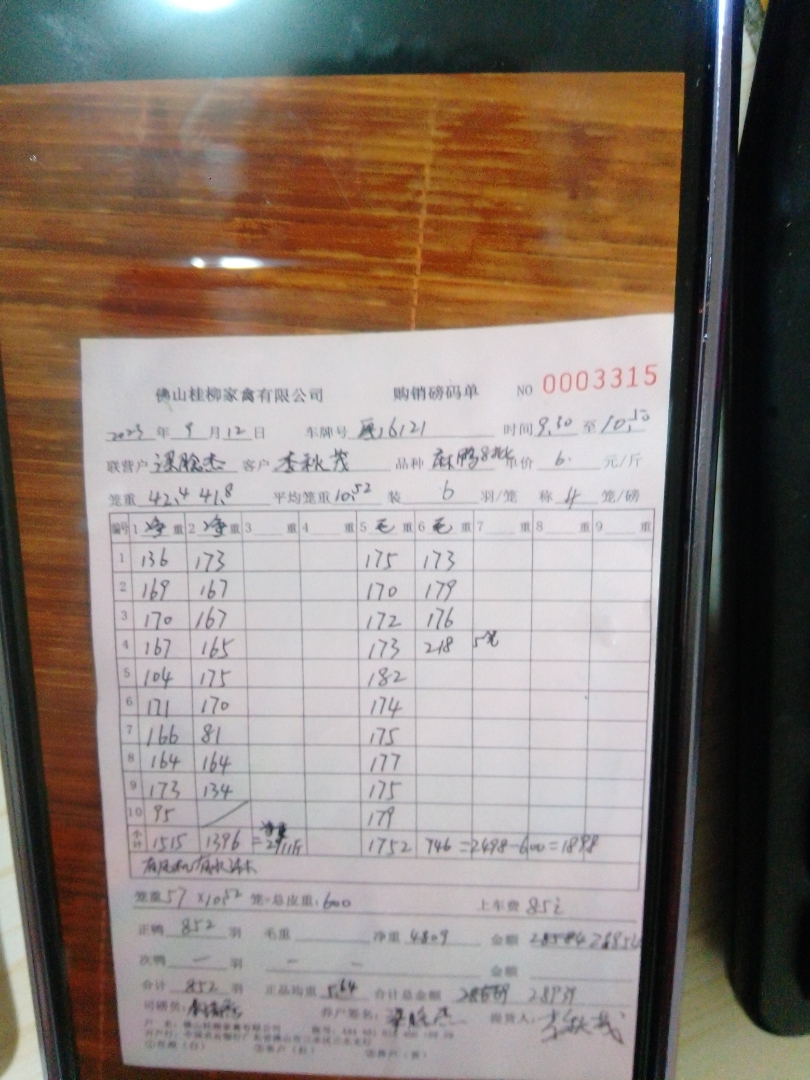 佛山桂柳家禽有限公司 购销磅码单 NO 0003315
2023 年 9 月 12 日 车牌号 16121 时间 9.30 至 10.10
联营户 梁 杰 客户 李秋茂 品种 麻鸭 单价 6. 元/斤
笼重 42.4 41.8 平均笼重 10.52 装 6 羽/笼 称 4 笼/磅
编号 1 净 重 2 净 重 3 重 4 重 5 毛 重 6 毛 重 7 重 8 重 9 重
1 136 173 175 173
2 169 167 170 179
3 170 167 172 176
4 167 165 173 218 5笼
5 104 175 182
6 171 170 174
7 166 81 175
8 164 164 177
9 173 134 175
10 95 179
小计 1515 1396 = 2911斤 1752 746 =2498-600=1898
笼重 57 ×10.52 笼·总皮重: 600 上车费 85
正鸭 852 羽 毛重 净重 4809 金额
次鸭 — 羽 — — 金额
合计 852 羽 正品均重 5.64 合计总金额 28939
司磅员: 养户签名: 梁 杰 提货人: 李秋茂
户 名: 佛山桂柳家禽有限公司 账号: